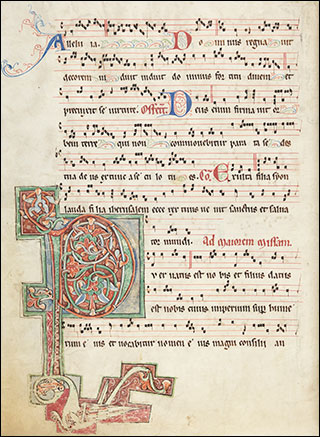 Alleluia. Dominus regnavit
decorem induit induit dominus fortitudinem et
precinxit se virtute. Offert. Deus enim firmavit or
bem terre qui non commovebitur parata sedes
tua deus ex tunc a seculo tu es. Co. Exulta filia syon
lauda filia iherusalem ecce rex tuus venit sanctus et salva
tor mundi. Ad maiorem missam.
Puer natus est nobis et filius datus
est nobis cuius imperium super hume
rum eius et vocabitur nomen eius magni consilii an